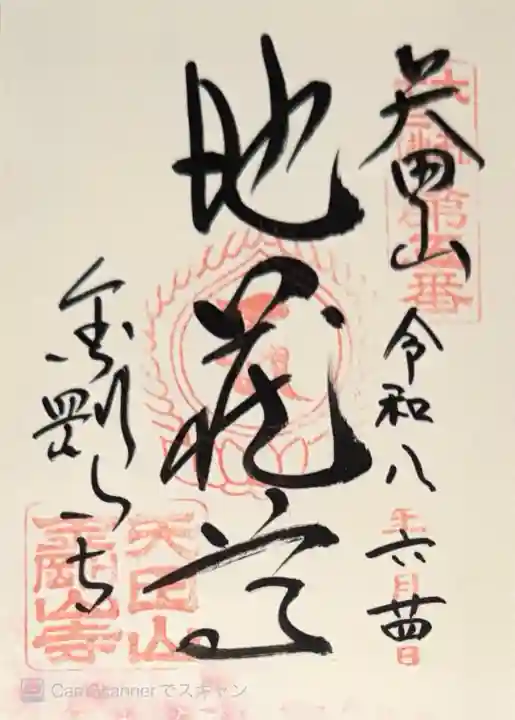 矢田山
第五番
令和八年六月廿四日
地蔵尊
金剛山寺
矢田山
金剛山寺
CamScannerでスキャン